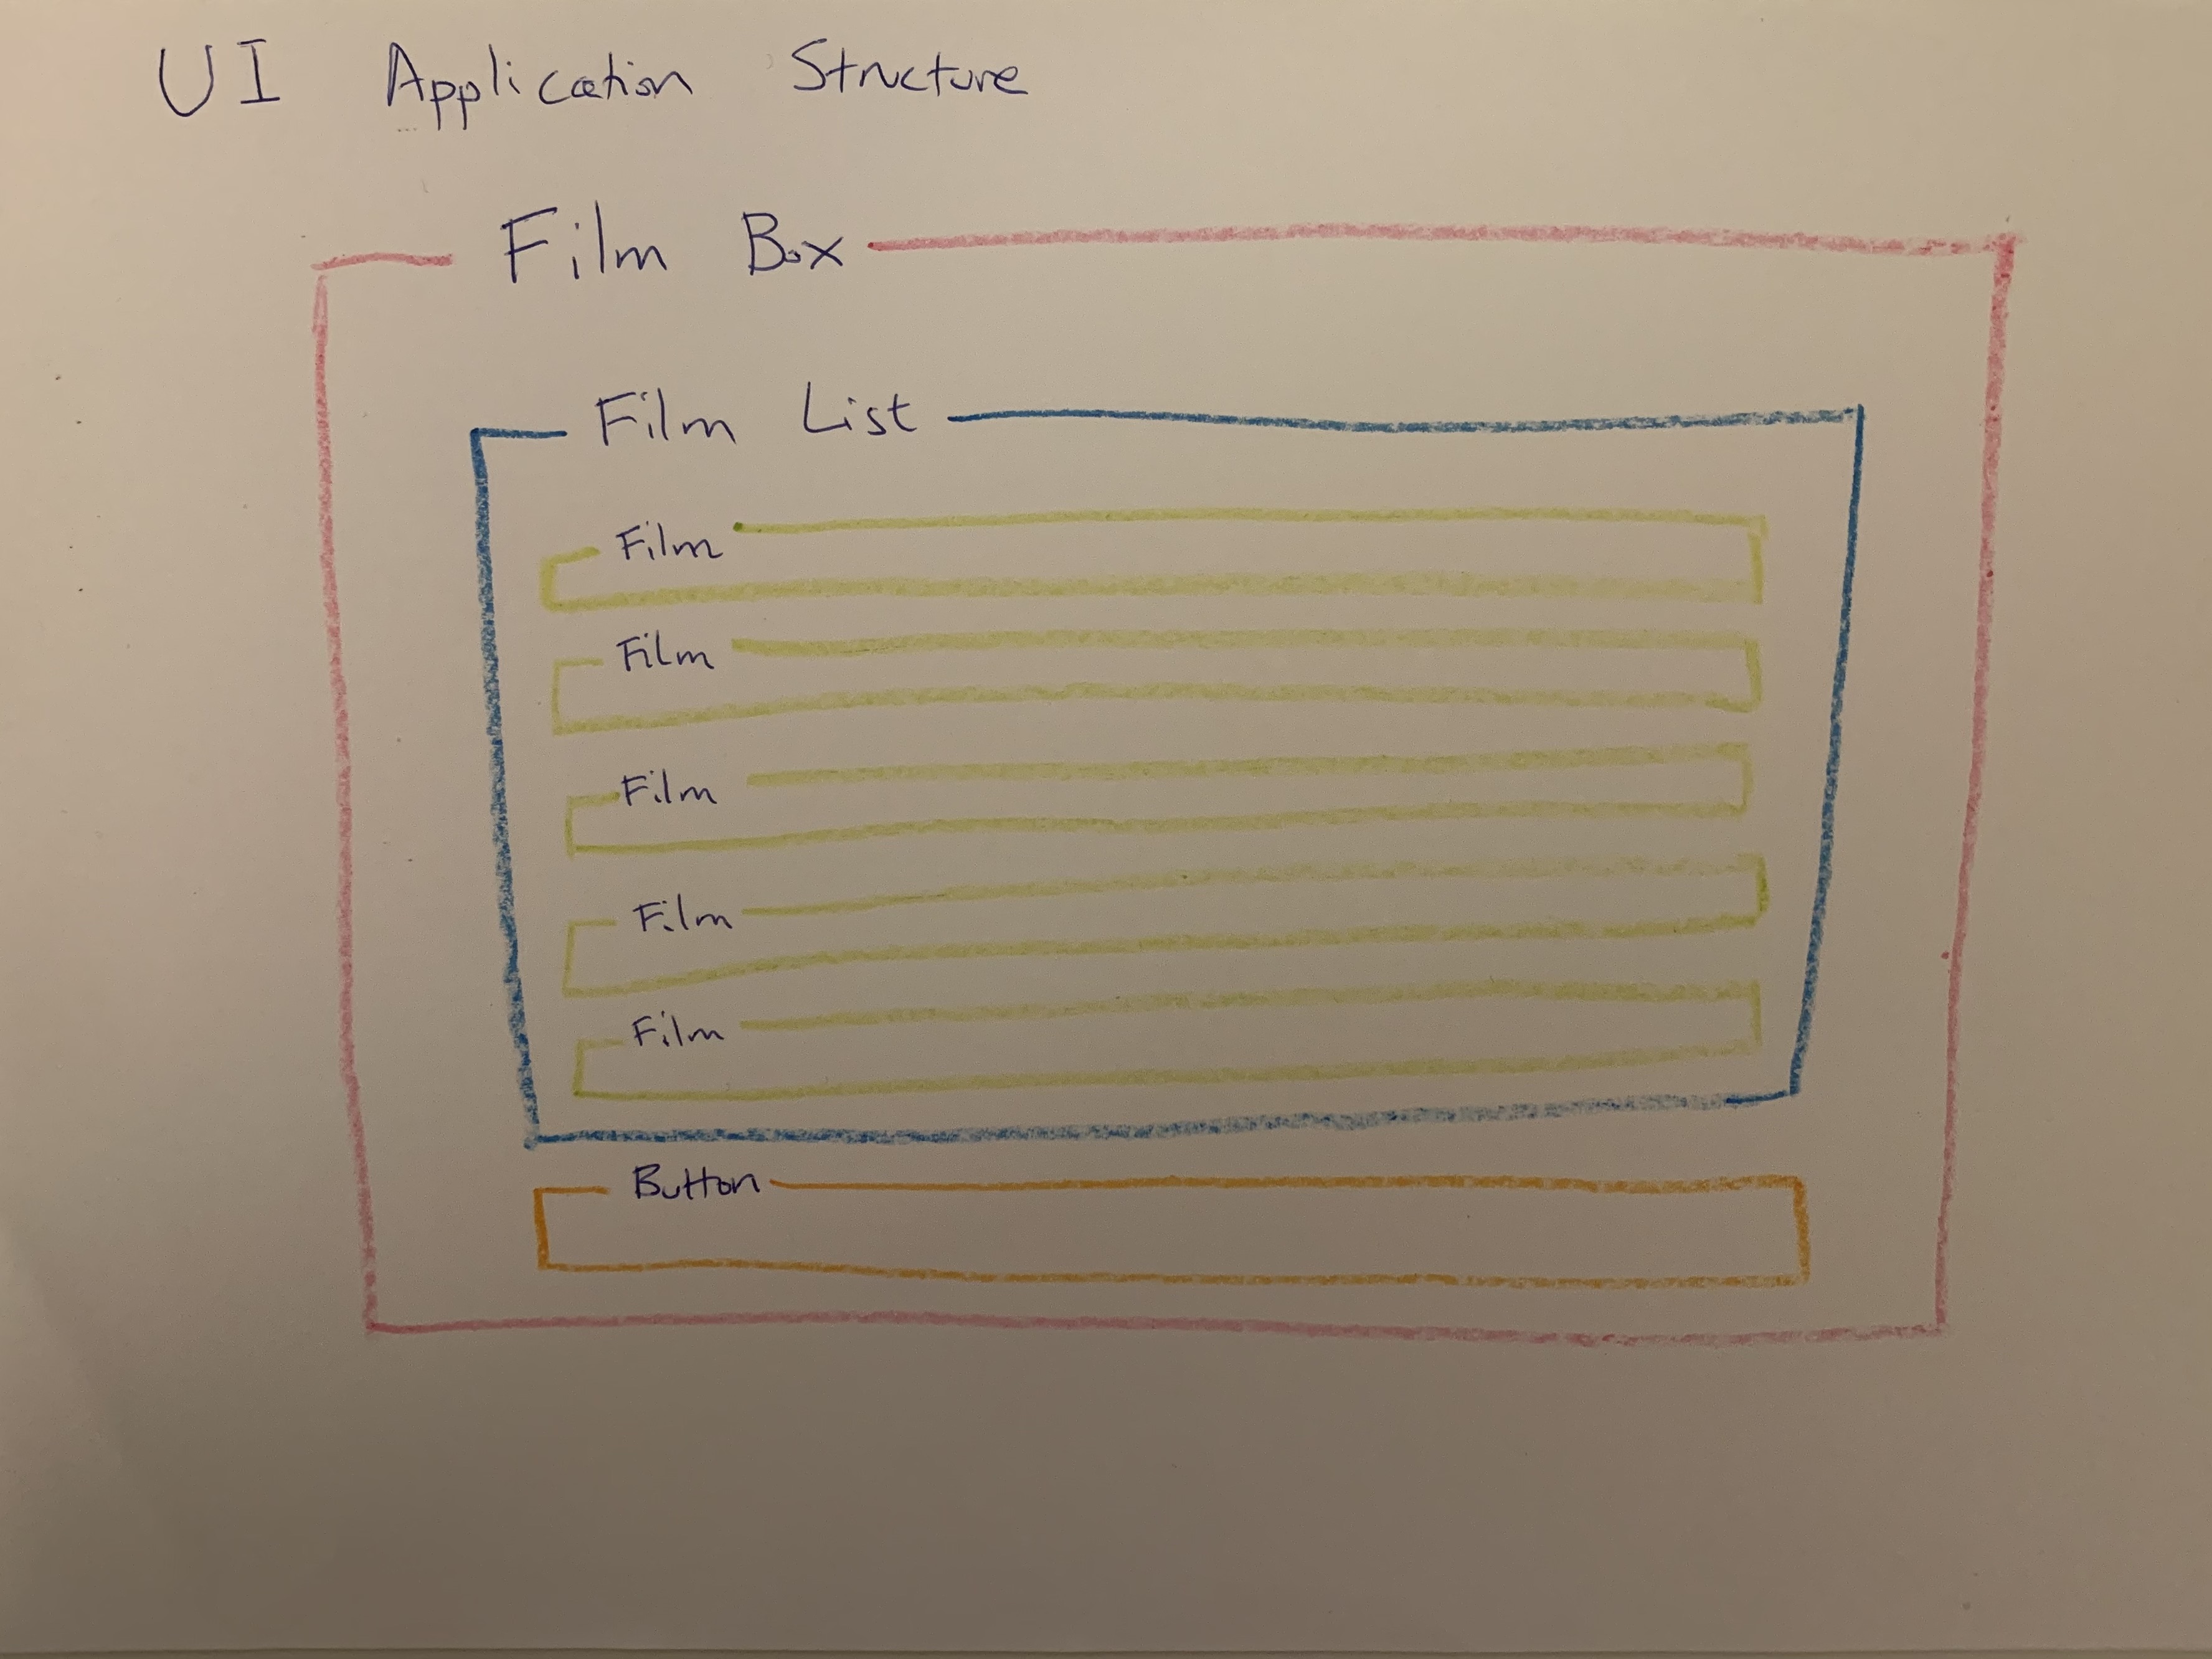 UI Application Structure
Film Box
Film List
Film
Film
Film
Film
Film
Button